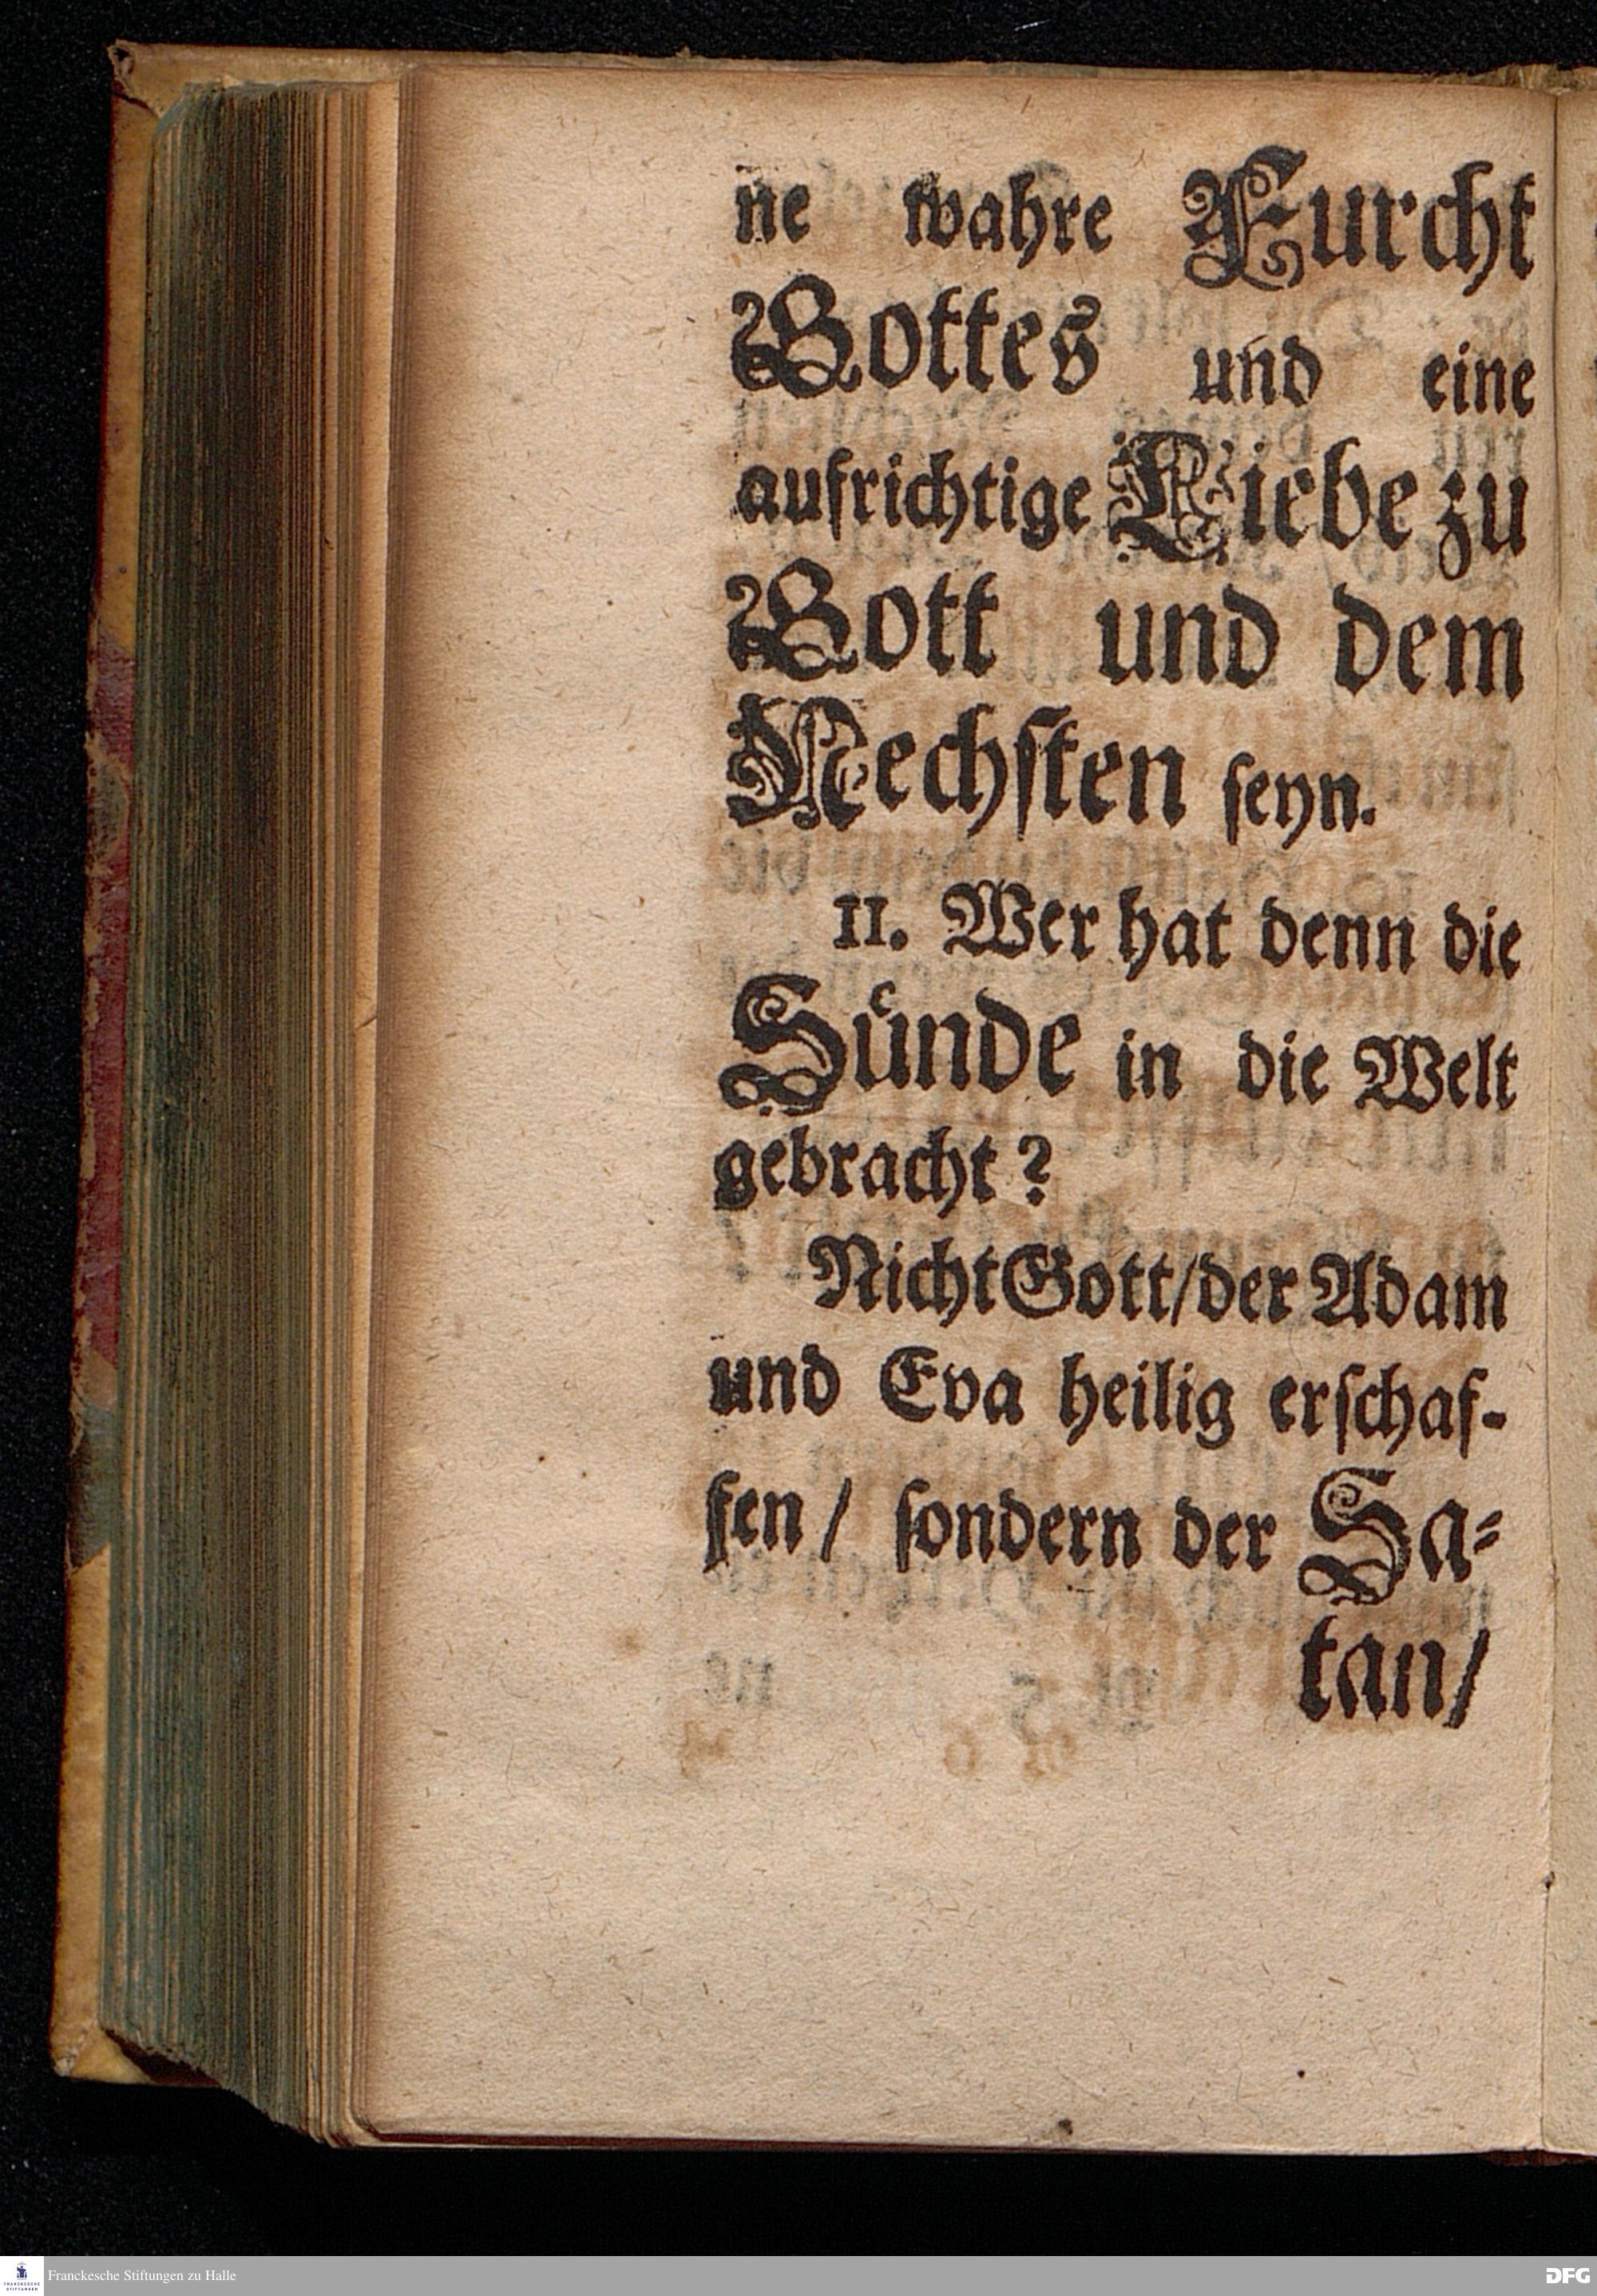 ne wahre Furcht
Gottes und eine
aufrichtige Liebe zu
Gott und dem
Nechsten seyn.
11. Wer hat denn die
Sünde in die Welt
gebracht?
Nicht Gott/der Adam
und Eva heilig erschaf-
fen/ sondern der Sa-
tan/
Franckesche Stiftungen zu Halle
DFG